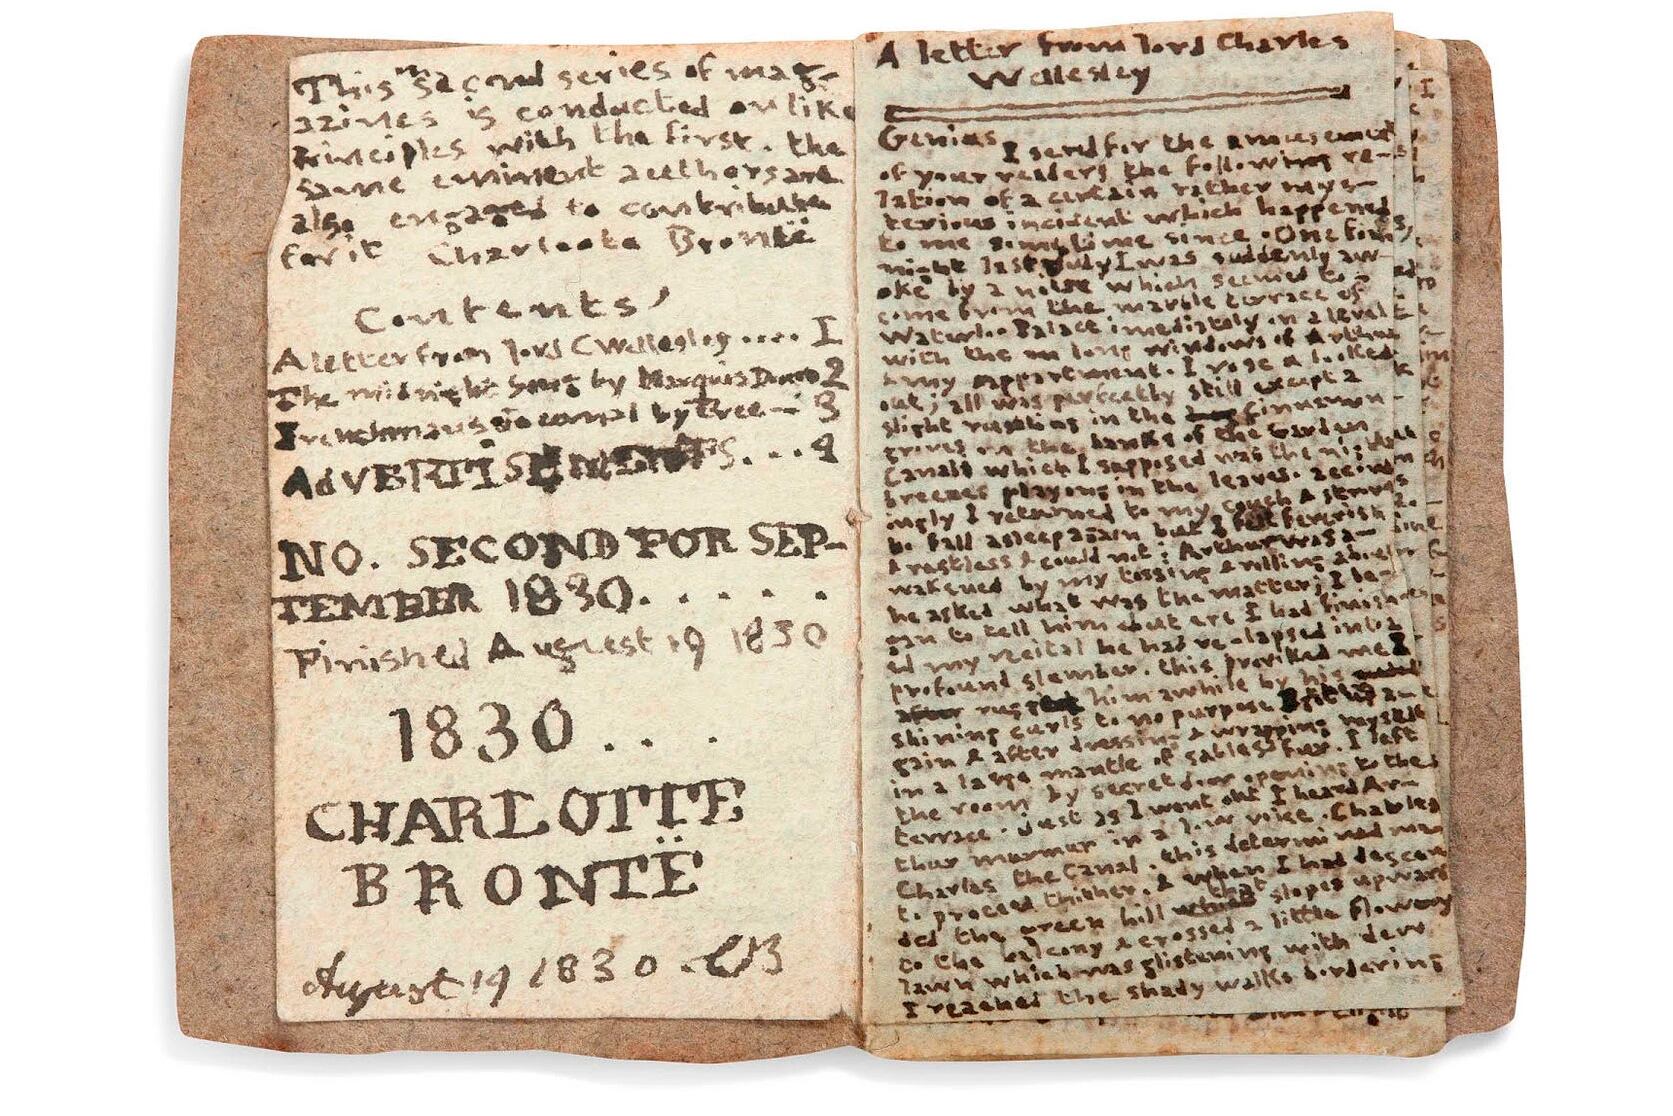 This second series of mag-
azines is conducted on like
Principles with the first. the
same eminent authors are
also engaged to contribute
for it Charlotte Brontë
Contents
A letter from lord C Wellesley .... I
The midnight Song by Marquis Douro 2
Frenchmans journal by Tree — 3
AdVERTISEMENTS.... 4
NO. SECOND FOR SEP-
TEMBER 1830. . . . .
Finished August 19 1830
1830 . . .
CHARLOTTE
BRONTË
August 19 1830 . CB
A letter from lord Charles
Wellesley
Genius
I send for the amusement
of your readers the following re-
lation of a certain rather mys-
terious incident which happened
to me sometime since. One fine
night last July I was suddenly aw-
oke by a noise which seemed to
come from the marble terrace of
Waterloo Palace imediately on a level
with the long windows of Arthur
& my appartement. I rose & looked
out; all was perfectly still except a
slight rustling in the cinnamon-
groves on the banks of the Garden
Canal which I supposed was the night
breezes playing in the leaves. accord
ingly I returned to my couch & strives
to fall asleep again but I felt feverish
& restless & could not; Arthur was a-
wakened by my tossing & rolling about
he asked what was the matter; I be-
gan to tell him but ere I had finish
ed my recital he had re-elapsed into a
profound slumber. this provoked me I
him awhile by his
shining curls to no purpose
gain & after dressing & wrapping myself
in a large mantle of sables fur. I left
the room by secret door opening to the
terrace. Just as I went out I heard Ar-
thur murmur in a low voice. Charles
Charles the Canal. this determined me
to proceed thither. & when I had descen
ded the green hill that slopes upward
to the balcony & crossed a little flowery
lawn which was glistening with dew
I reached the shady walks bordering